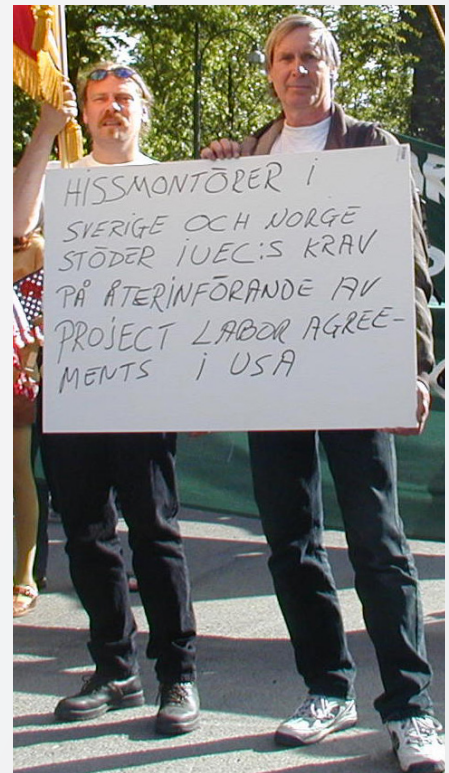 HISSMONTÖRER I
SVERIGE OCH NORGE
STÖDER IUEC:S KRAV
PÅ ÅTERINFÖRANDE AV
PROJECT LABOR AGREE-
MENTS I USA